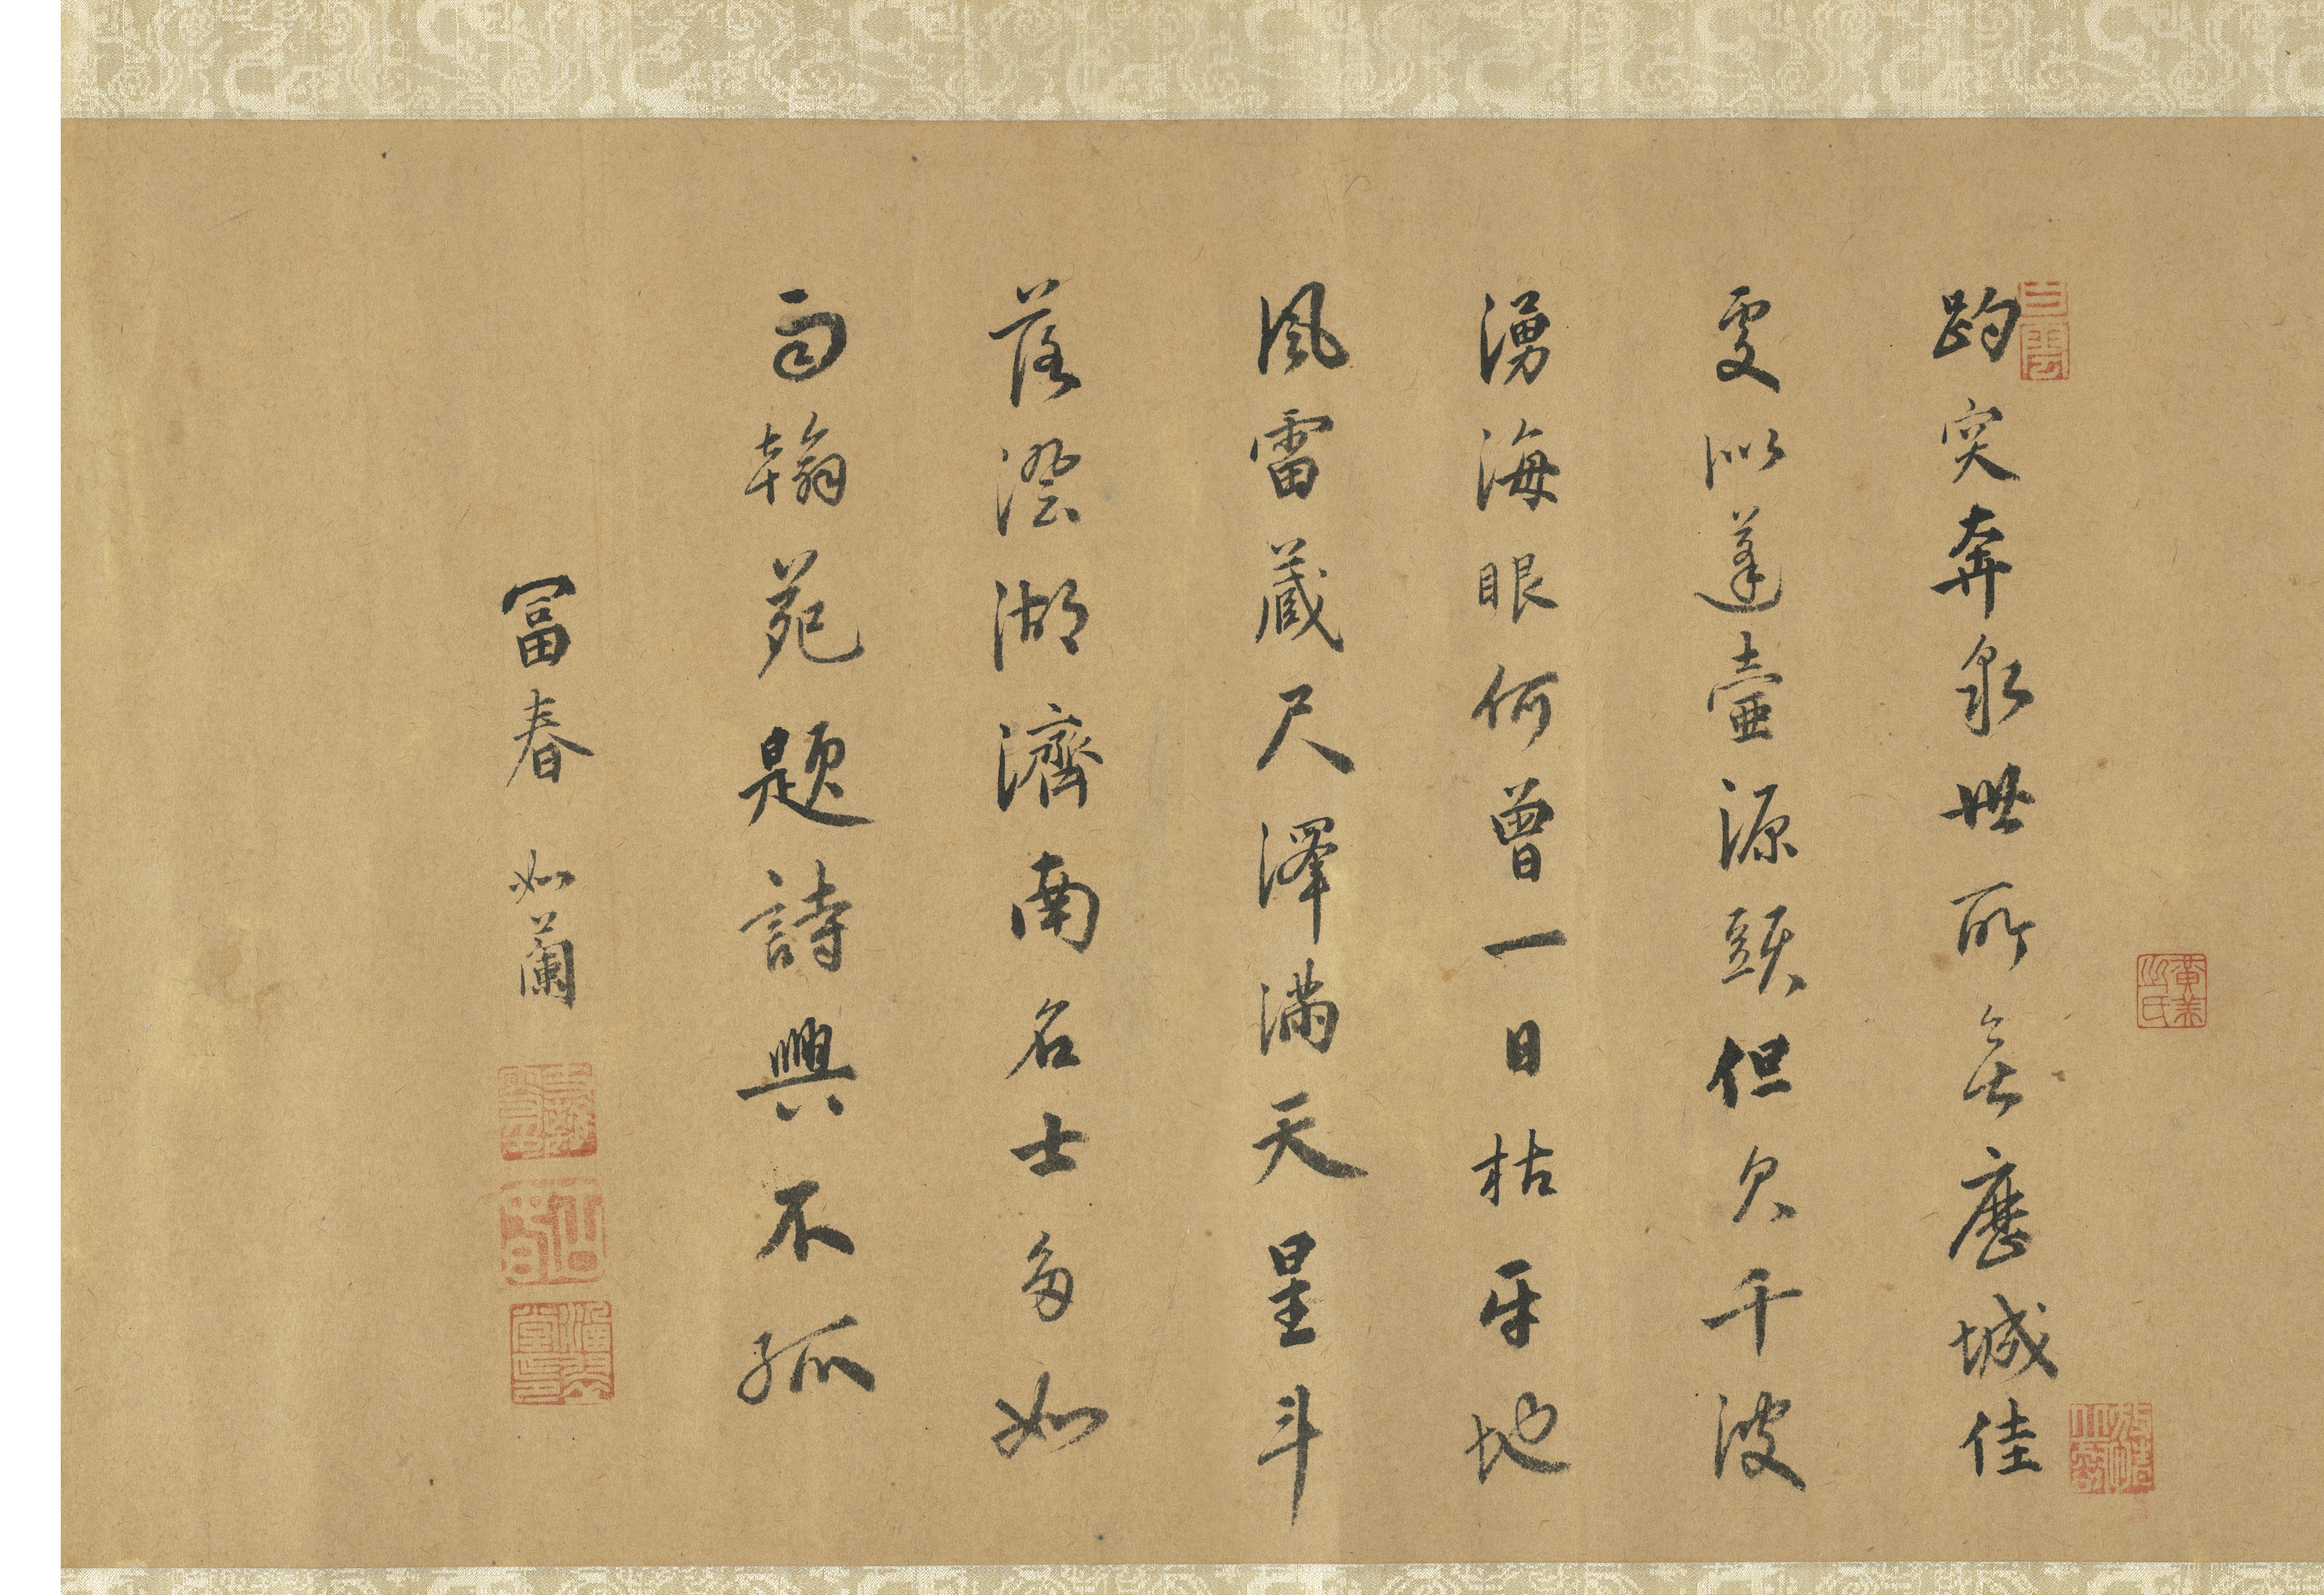 趵突奔泉世所無歷城佳
處似蓬壺源頭但欠千波
湧海眼何曾一日枯平地
風雷藏尺澤滿天星斗
落澄湖濟南名士多如
雨翰苑題詩興不孤
富春 如蘭
黃美之氏